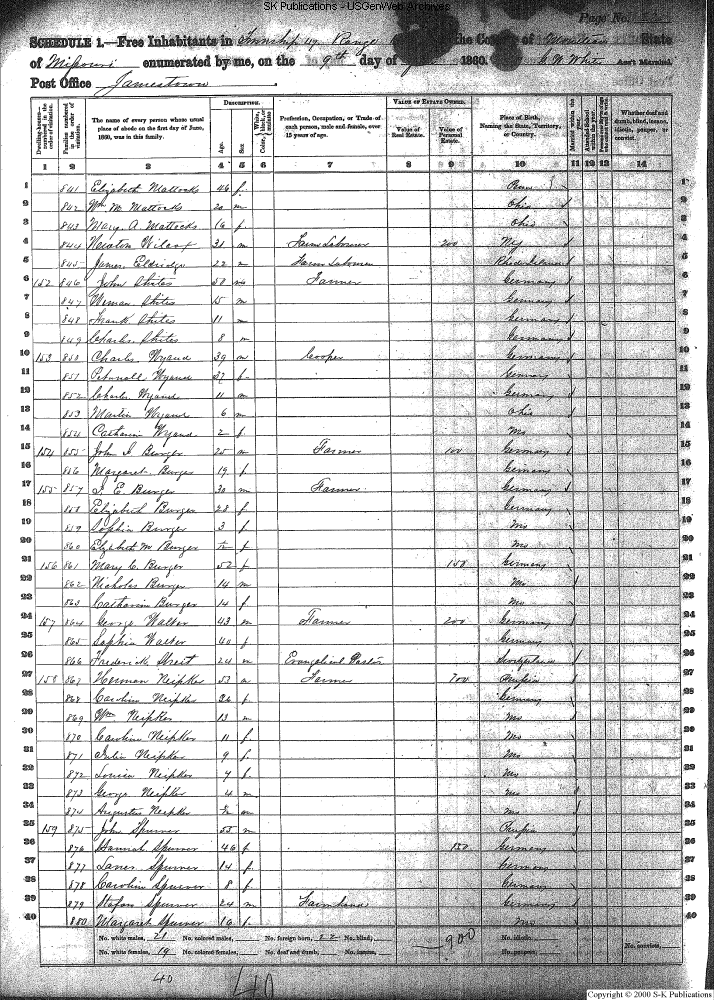 SK Publications - USGenWeb Archives
Page No.
SCHEDULE 1.—Free Inhabitants in Township 47 Range the County of Moniteau State
of Missouri enumerated by me, on the 9th day of 1860. White Ass't Marshal.
Post Office Jamestown
DESCRIPTION. VALUE OF ESTATE OWNED.
Dwelling-houses—numbered in the order of visitation. Families numbered in the order of visitation. The name of every person whose usual place of abode on the first day of June, 1860, was in this family. Age. Sex. Color, White, black, or mulatto. Profession, Occupation, or Trade of each person, male and female, over 15 years of age. Value of Real Estate. Value of Personal Estate. Place of Birth, Naming the State, Territory, or Country. Married within the year. Attended School within the year. Whether deaf and dumb, blind, insane, idiotic, pauper, or convict.
1 2 3 4 5 6 7 8 9 10 11 12 13 14
1 841 Elizabeth Mattocks 46 f Penn 1
2 842 Wm M Mattocks 20 m Ohio / 2
3 843 Mary A Mattocks 16 f Ohio 3
4 844 Newton Wilcox 31 m Farm Laborer 200 NY / 4
5 845 James Eldridge 22 m Farm Laborer Rhode Island / 5
6 152 846 John Shites 50 m Farmer Germany / 6
7 847 Shites 15 m Germany 7
8 848 Frank Shites 11 m Germany 8
9 849 Charles Shites 8 m Germany 9
10 153 850 Charles Wyand 39 m Cooper Germany / 10
11 851 Wyand 37 f Germany 11
12 852 Charles Wyand 11 m Germany 12
13 853 Martin Wyand 6 m Ohio 13
14 854 Catharine Wyand 2 f Mo 14
15 154 855 John Burger 25 m Farmer 100 Germany / 15
16 856 Margaret Burger 19 f Germany 16
17 155 857 Burger 30 m Farmer Germany / 17
18 858 Elizabeth Burger 28 f Germany 18
19 859 Sophia Burger 3 f Mo 19
20 860 Elizabeth M Burger f Mo 20
21 156 861 Mary C. Burger 52 f 150 Germany 21
22 862 Nicholas Burger 14 m Mo 22
23 863 Catharine Burger 14 f Mo 23
24 157 864 George Walter 43 m Farmer 200 Germany / 24
25 865 Sophia Walter 40 f Germany 25
26 866 Frederick Streit 24 m Evangelical Pastor Switzerland / 26
27 158 867 Herman Neipker 53 m Farmer 700 Prussia / 27
28 868 Caroline Neipker 36 f Germany 28
29 869 Wm Neipker 13 m Mo 29
30 870 Caroline Neipker 11 f Mo 30
31 871 Julia Neipker 9 f Mo 31
32 872 Louisa Neipker 7 f Mo 32
33 873 George Neipker 4 m Mo 33
34 874 Augustus Neipker m Mo 34
35 159 875 John Spurner 55 m Prussia 35
36 876 Hannah Spurner 46 f 150 Germany 36
37 877 Spurner 14 f Germany 37
38 878 Caroline Spurner 8 f Germany 38
39 879 Spurner 24 m Farmhand Germany 39
40 880 Margaret Spurner 16 f Mo 40
No. white males, 21 No. colored males, No. foreign born, 22 No. blind, 900 No. idiotic,
No. white females, 19 No. colored females, No. deaf and dumb, No. insane, No. paupers, No. convicts,
40 40
Copyright © 2000 S-K Publications